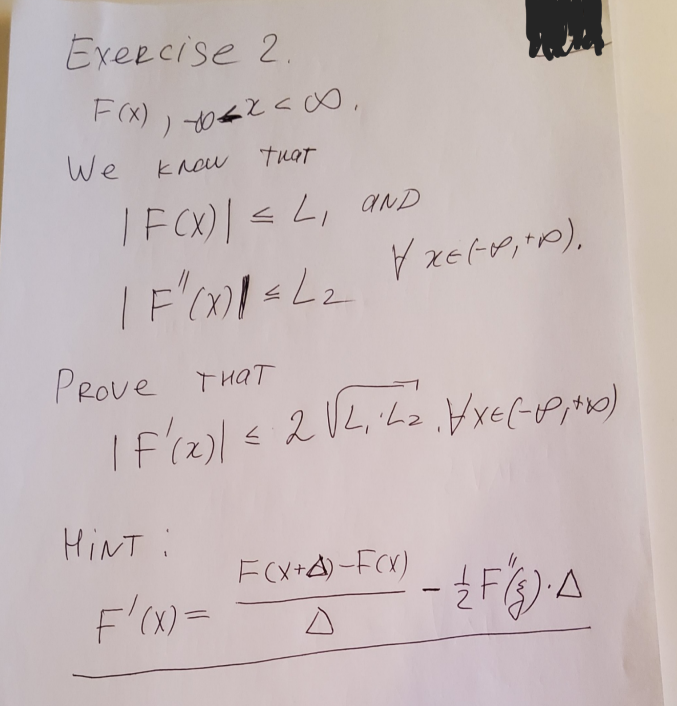 Exercise 2.
F(x), -∞<x<∞.
We know that
|F(x)| ≤ L₁ AND
|F''(x)| ≤ L₂ ∀ x∈(-∞,+∞).
PROVE THAT
|F'(x)| ≤ 2 √L₁·L₂ , ∀x∈(-∞,+∞)
HINT:
F'(x) = (F(x+Δ)-F(x))/Δ - ½ F''(ξ)·Δ